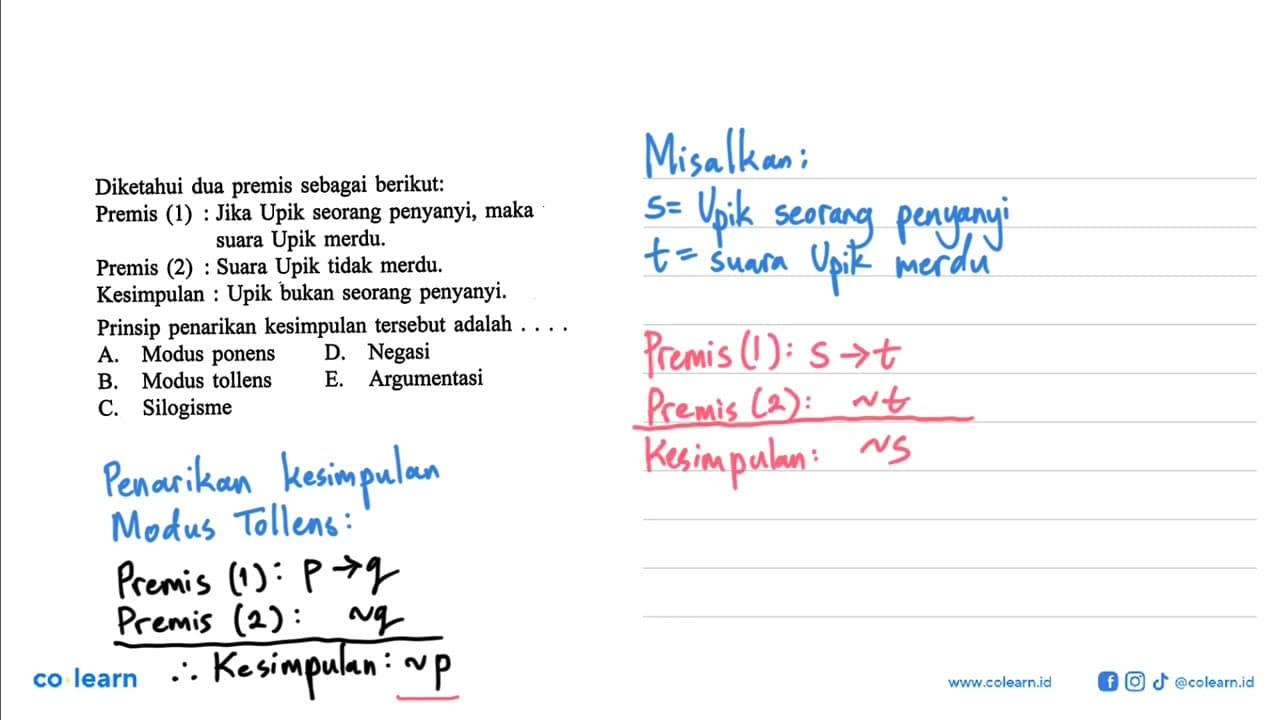 Diketahui dua premis sebagai berikut:
Premis (1) : Jika Upik seorang penyanyi, maka
suara Upik merdu.
Premis (2) : Suara Upik tidak merdu.
Kesimpulan : Upik bukan seorang penyanyi.
Prinsip penarikan kesimpulan tersebut adalah . . . .
A. Modus ponens D. Negasi
B. Modus tollens E. Argumentasi
C. Silogisme
Penarikan kesimpulan
Modus Tollens:
Premis (1): p → q
Premis (2): ~q
∴ Kesimpulan: ~p
Misalkan:
s = Upik seorang penyanyi
t = suara Upik merdu
Premis (1): s → t
Premis (2): ~t
Kesimpulan: ~s
co learn
www.colearn.id
@colearn.id